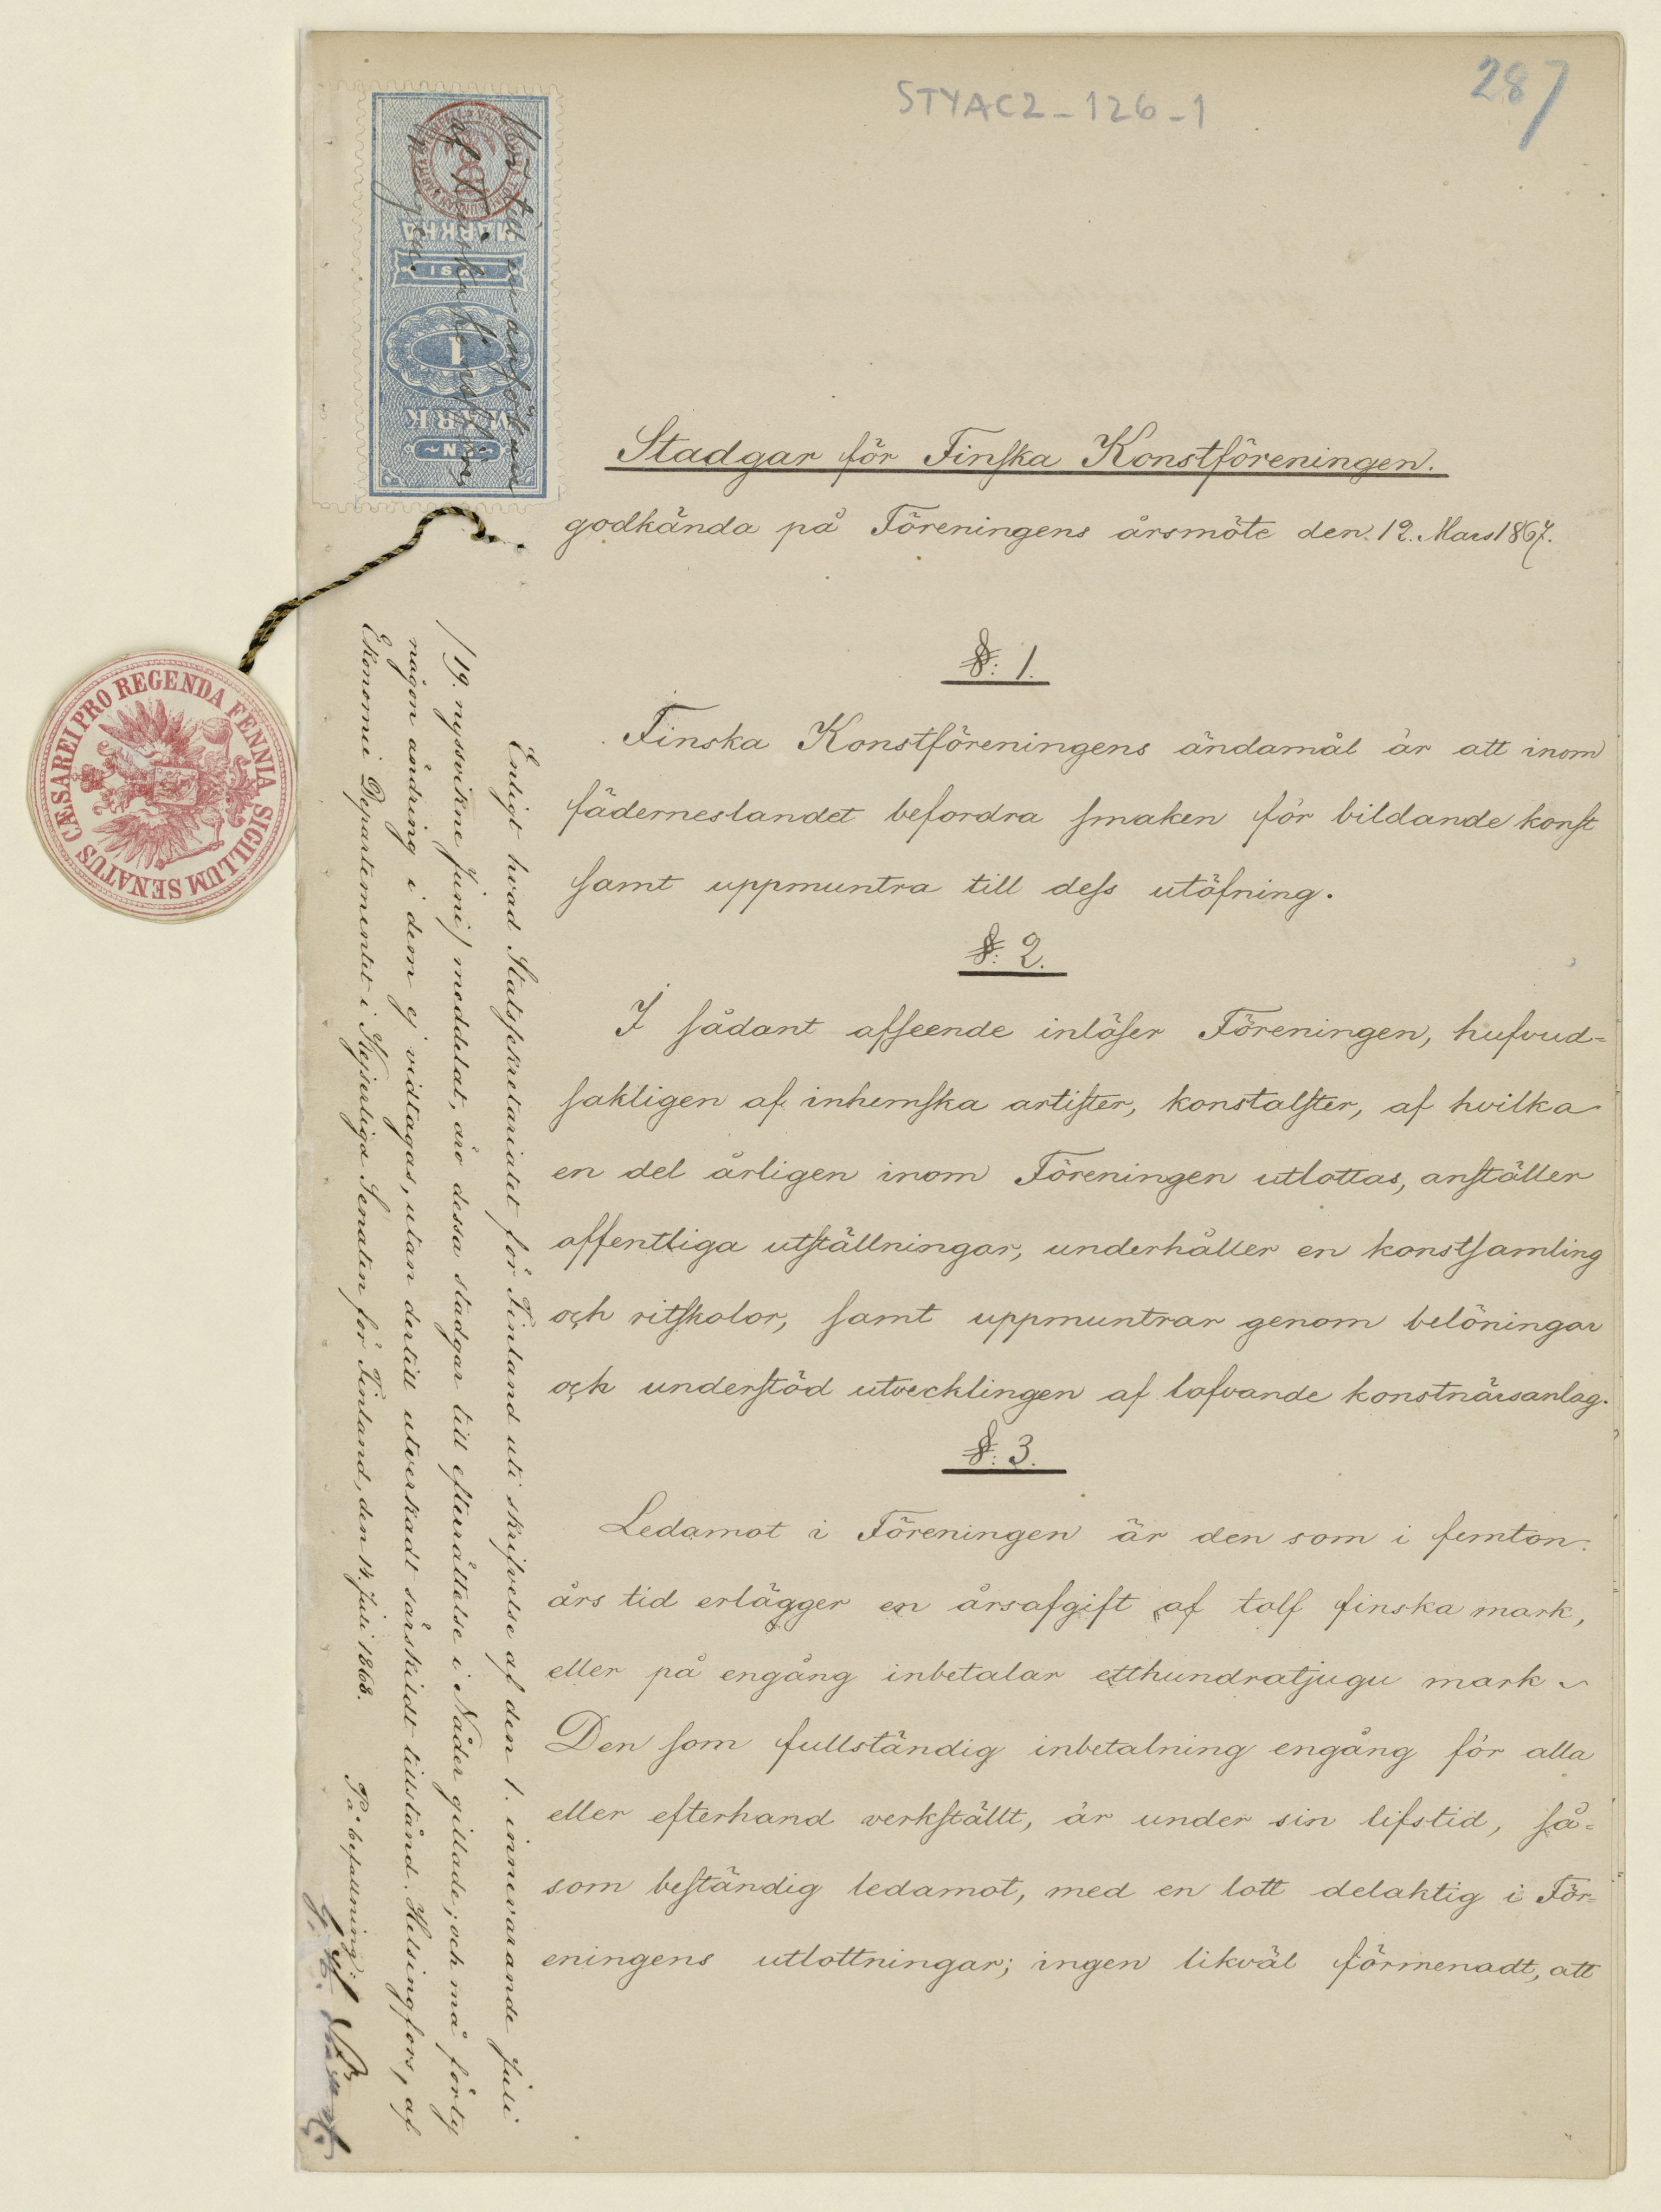 STYAC2-126-1
287
YKSI
MARKKA
1
MARK
EN
Stadgar för Finska Konstföreningen.
godkända på Föreningens årsmöte den 12. Mars 1867.
§: 1.
Finska Konstföreningens ändamål är att inom
fäderneslandet befordra smaken för bildande konst
samt uppmuntra till dess utöfning.
§: 2.
I sådant afseende inlöser Föreningen, hufvud=
sakligen af inhemska artister, konstalster, af hvilka
en del årligen inom Föreningen utlottas, anställer
offentliga utställningar, underhåller en konstsamling
och ritskolor, samt uppmuntrar genom belöningar
och understöd utvecklingen af lofvande konstnärsanlag.
§: 3.
Ledamot i Föreningen är den som i femton
års tid erlägger en årsafgift af tolf finska mark,
eller på engång inbetalar etthundratjugu mark.
Den som fullständig inbetalning engång för alla
eller efterhand verkställt, är under sin lifstid, så=
som beständig ledamot, med en lott delaktig i För=
eningens utlottningar; ingen likväl förmenadt, att
Enligt hvad Statssekretariatet för Finland uti skrifvelse af den 1. innevarande Juli
/19. nyssvikne Juni/ meddelat, äro dessa stadgar till efterrättelse i Nåder gillade; och må förty
någon ändring i dem ej vidtagas, utan dertill utverkadt särskildt tillstånd. Helsingfors, af
Ekonomie Departementet i Kejserliga Senaten för Finland, den 14. Juli 1868.
På befallning:
SIGILLUM SENATUS CÆSAREI PRO REGENDA FENNIA